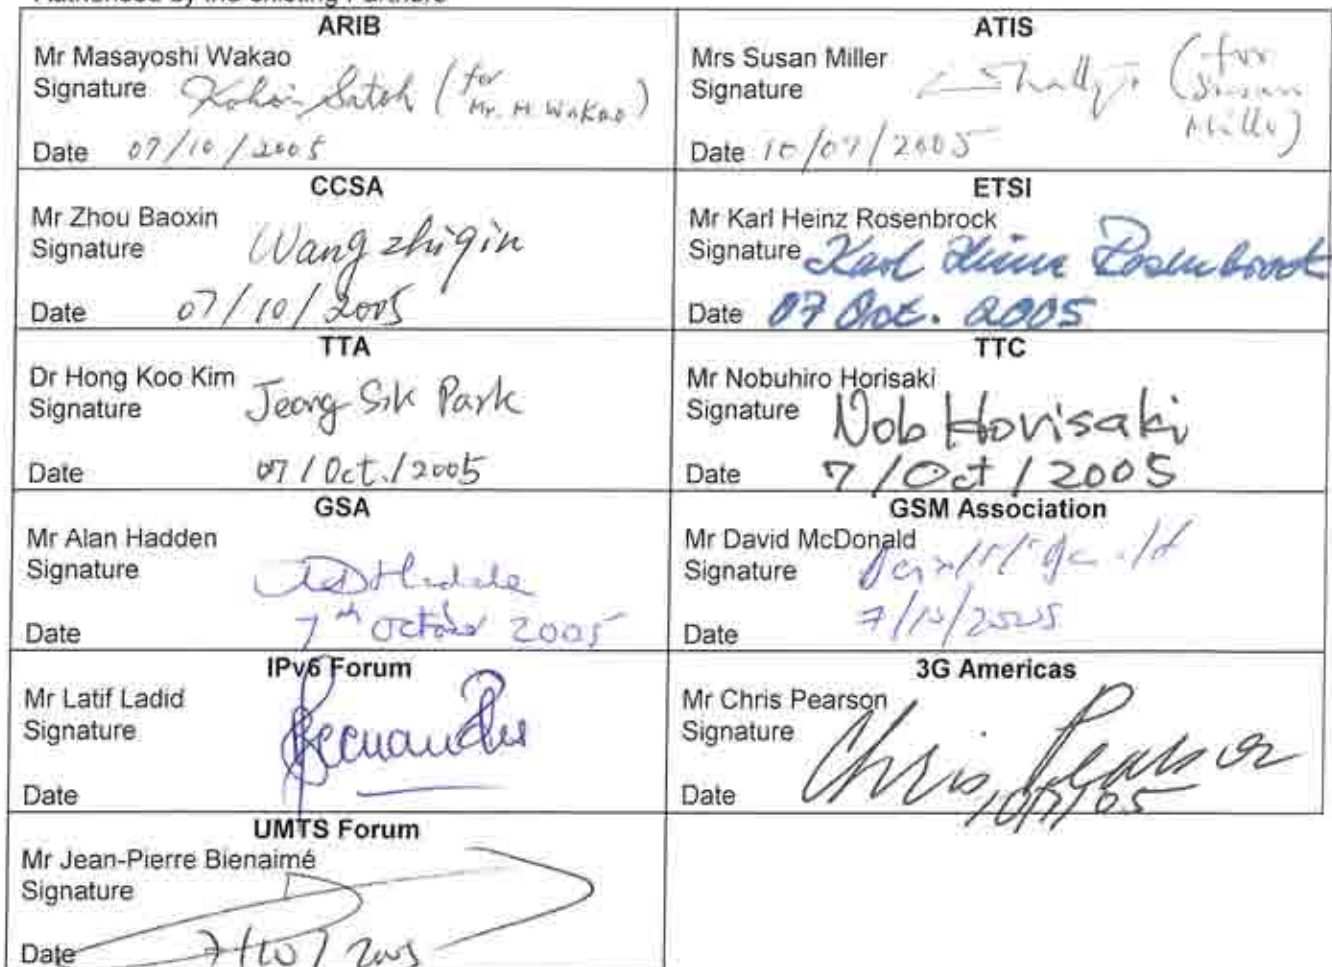 Authorised by the existing Partners
ARIB
Mr Masayoshi Wakao
Signature Kohei Satoh (for Mr. M. Wakao)
Date 07/10/2005
ATIS
Mrs Susan Miller
Signature (for Susan Miller)
Date 10/07/2005
CCSA
Mr Zhou Baoxin
Signature Wang zhiqin
Date 07/10/2005
ETSI
Mr Karl Heinz Rosenbrock
Signature Karl Heinz Rosenbrock
Date 07 Oct. 2005
TTA
Dr Hong Koo Kim
Signature Jeong Sik Park
Date 07/Oct./2005
TTC
Mr Nobuhiro Horisaki
Signature Nob Horisaki
Date 7/Oct/2005
GSA
Mr Alan Hadden
Signature
Date 7th October 2005
GSM Association
Mr David McDonald
Signature
Date 7/10/2005
IPv6 Forum
Mr Latif Ladid
Signature
Date
3G Americas
Mr Chris Pearson
Signature Chris Pearson
Date 10/7/05
UMTS Forum
Mr Jean-Pierre Bienaimé
Signature
Date 7/10/2005